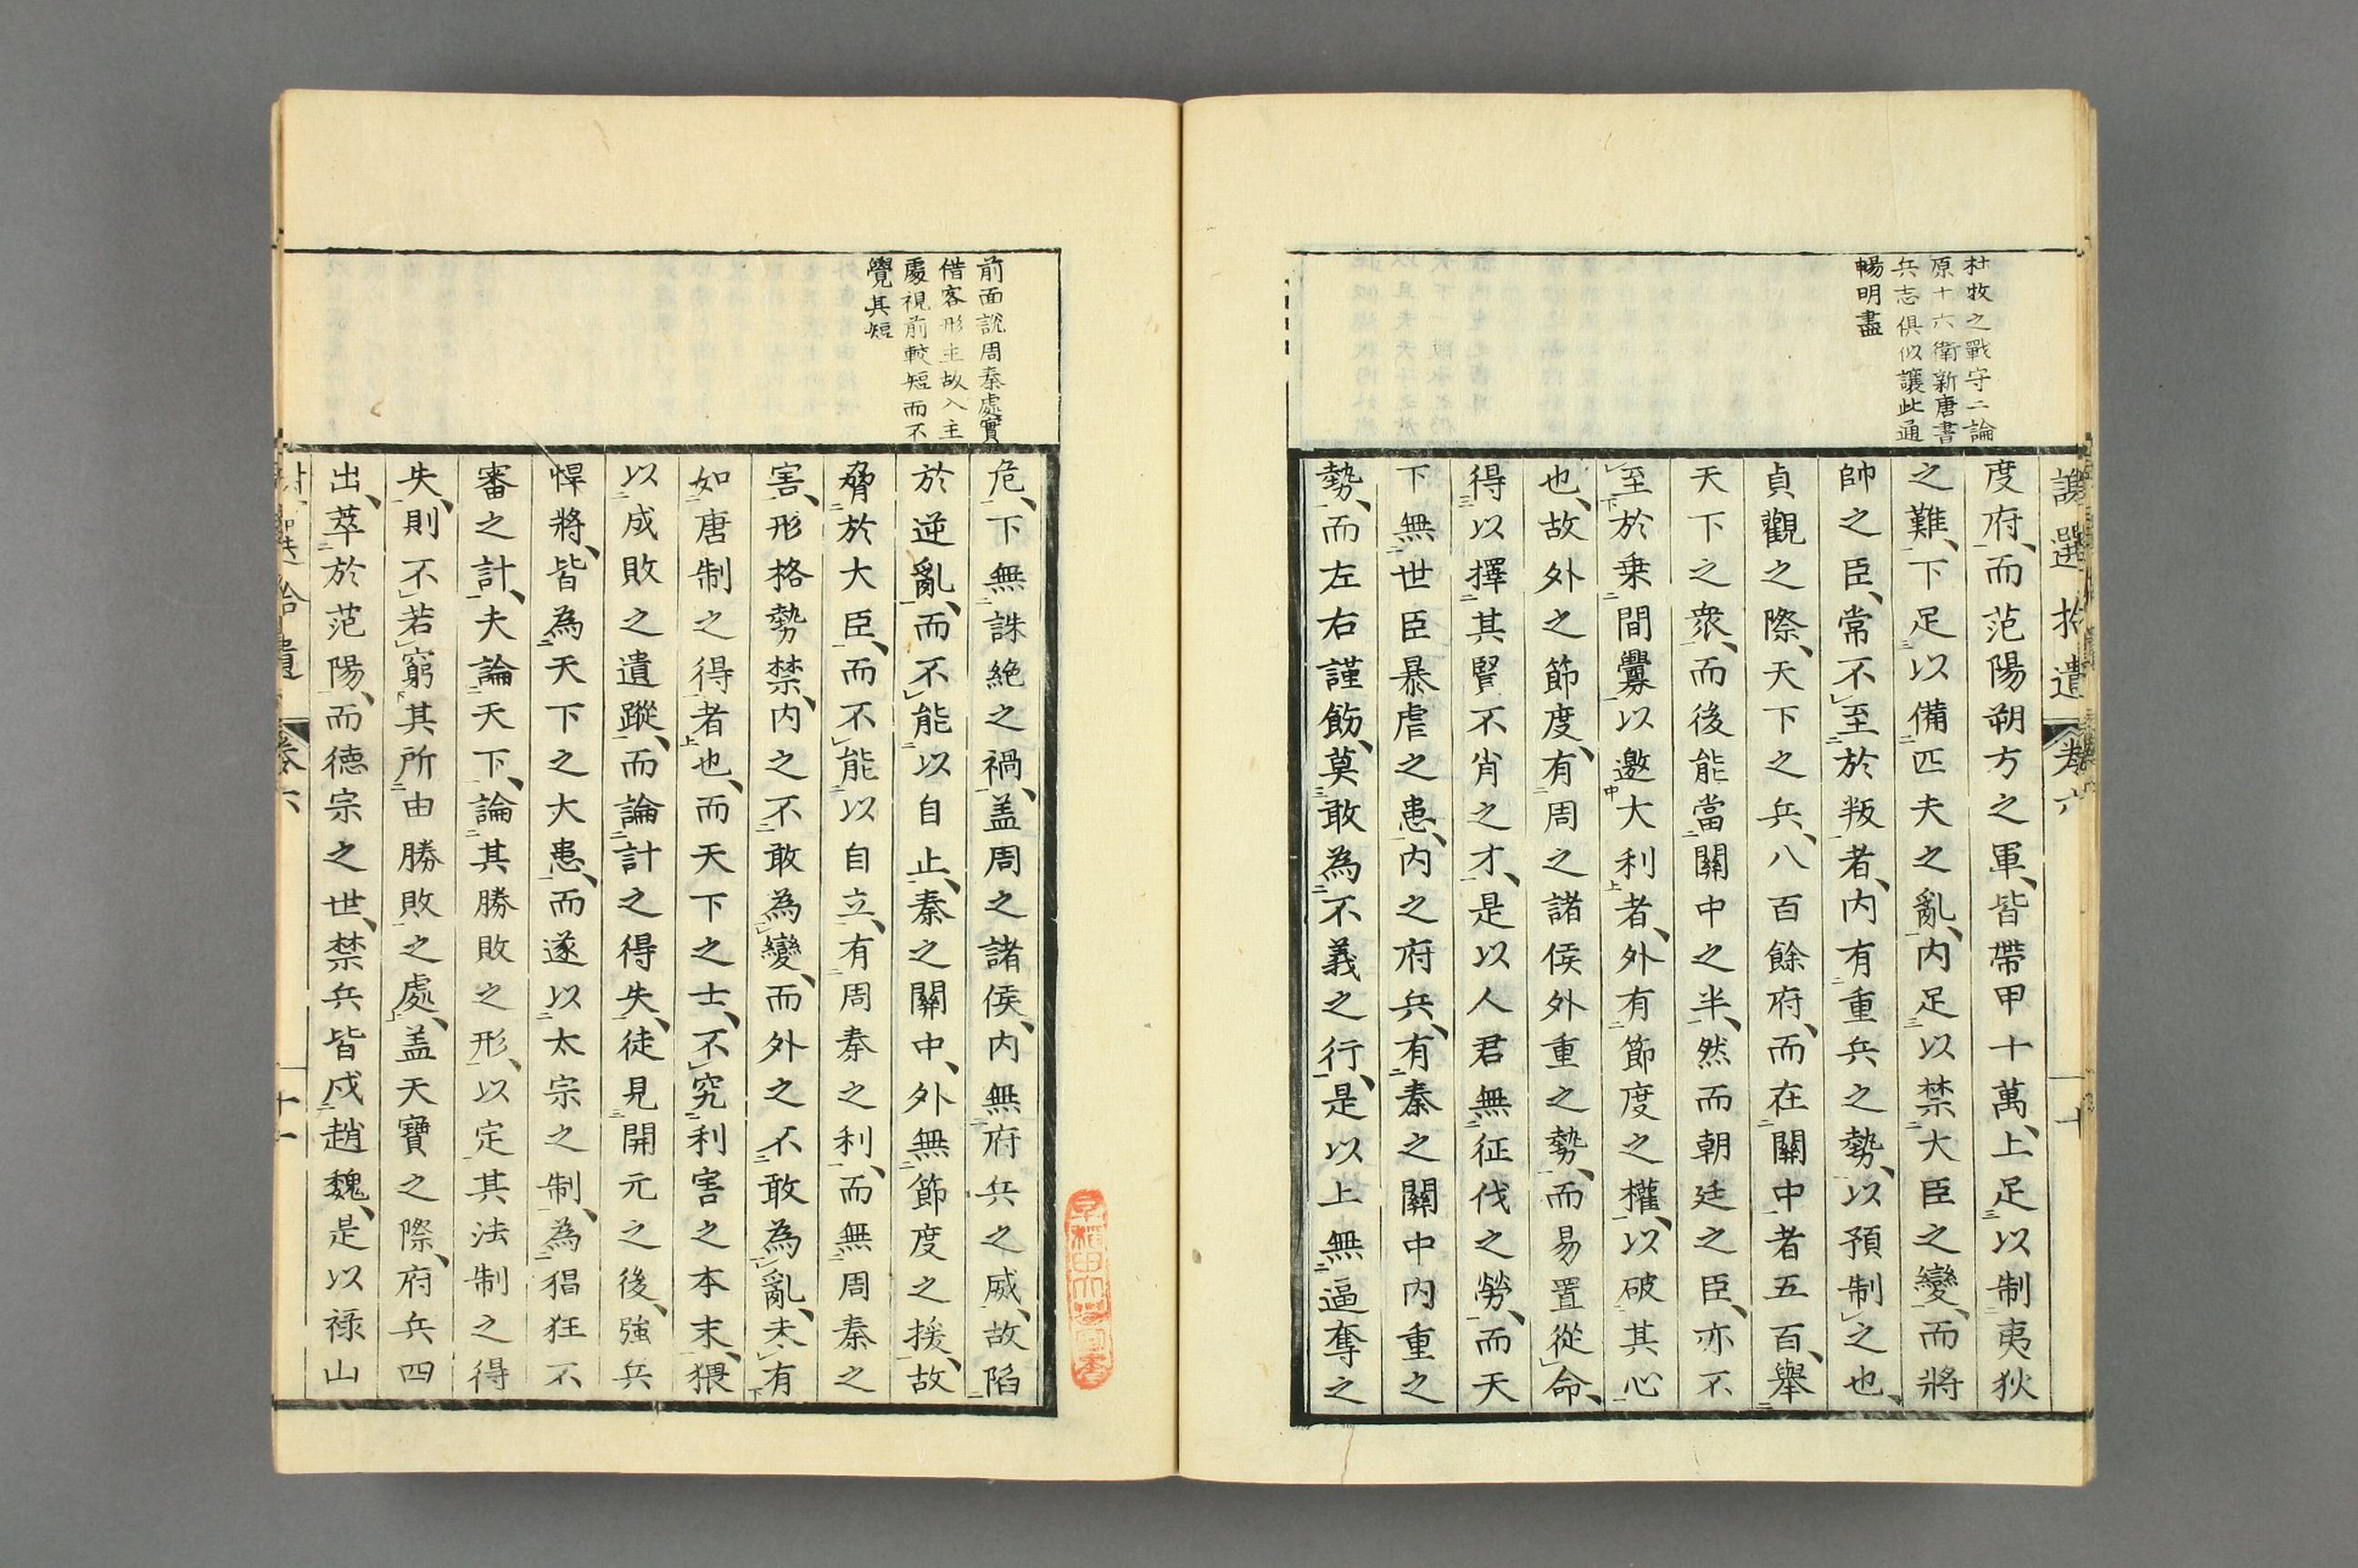 杜牧之戰守二論
原十六衛新唐書
兵志俱似讓此通
暢明盡
度府、而范陽朔方之軍、皆帶甲十萬、上足以制夷狄
之難、下足以備匹夫之亂、内足以禁大臣之變、而將
帥之臣、常不至於叛者、内有重兵之勢、以預制之也、
貞觀之際、天下之兵、八百餘府、而在關中者五百、舉
天下之衆、而後能當關中之半、然而朝廷之臣、亦不
至於乗間釁以邀大利者、外有節度之權、以破其心
也、故外之節度、有周之諸侯外重之勢、而易置從命、
得以擇其賢不肖之才、是以人君無征伐之勞、而天
下無世臣暴虐之患、内之府兵、有秦之關中内重之
勢、而左右謹飭、莫敢為不義之行、是以上無逼奪之
前面說周秦處實
借客形主故入主
處視前較短而不
覺其短
危、下無誅絶之禍、盖周之諸侯、内無府兵之威、故陷
於逆亂、而不能以自止、秦之關中、外無節度之援、故
脅於大臣、而不能以自立、有周秦之利、而無周秦之
害、形格勢禁、内之不敢為變、而外之不敢為亂、未有
如唐制之得者也、而天下之士、不究利害之本末、猥
以成敗之遺蹤、而論計之得失、徒見開元之後、強兵
悍將、皆為天下之大患、而遂以太宗之制、為猖狂不
審之計、夫論天下、論其勝敗之形、以定其法制之得
失、則不若窮其所由勝敗之處、盖天寶之際、府兵四
出、萃於范陽、而德宗之世、禁兵皆戍趙魏、是以禄山